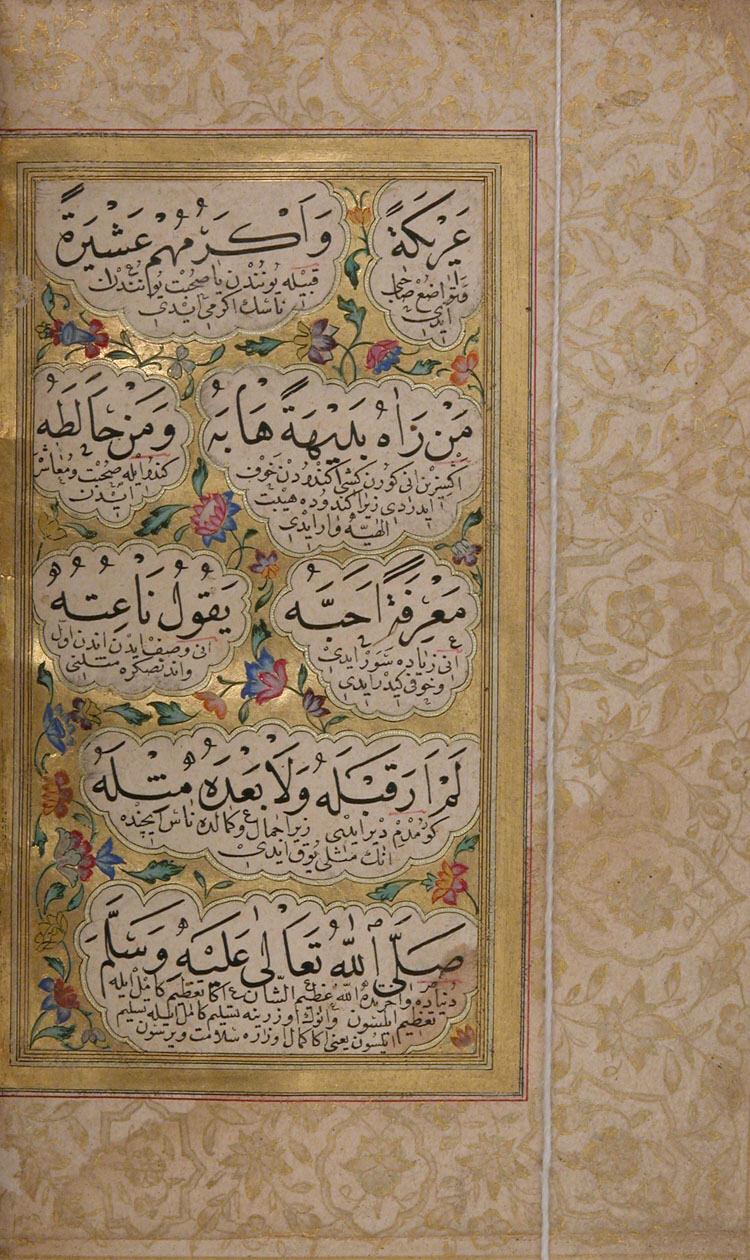 عَرِيكَةً
وتواضع صاحبى
ايدى
وَاَكْرَمُهُمْ عَشِيرَةً
قبيله يونندن يا صحبت يونندن
ناسك اكرمى ايدى
مَنْ رَاٰهُ بَدِيهَةً هَابَهُ
اكسزين انى كورن كشى كندودن خوف
ايدردى زيرا كندوده هيبت
الهيه وار ايدى
وَمَنْ خَالَطَهُ
كندو ايله صحبت ومعاشرت
ايدن
مَعْرِفَةً اَحَبَّهُ
انى زياده سور ايدى
وخوفى كيدر ايدى
يَقُولُ نَاعِتُهُ
انى وصف ايدن اندن اول
واندنصكره مثلنى
لَمْ اَرَ قَبْلَهُ وَلَا بَعْدَهُ مِثْلَهُ
كورمدم دير ايدى زيرا جمال وكمالده ناس ايچنده
انك مثلى يوق ايدى
صَلَّى اللّٰهُ تَعَالٰى عَلَيْهِ وَسَلَّمَ
دنياده واخرتده الله عظيم الشان اكا تعظيم كامل ايله
تعظيم ايلسون وانك اوزرينه تسليم كامل ايله تسليم
ايلسون يعنى اكا كمال اوزاره سلامت ويرسون